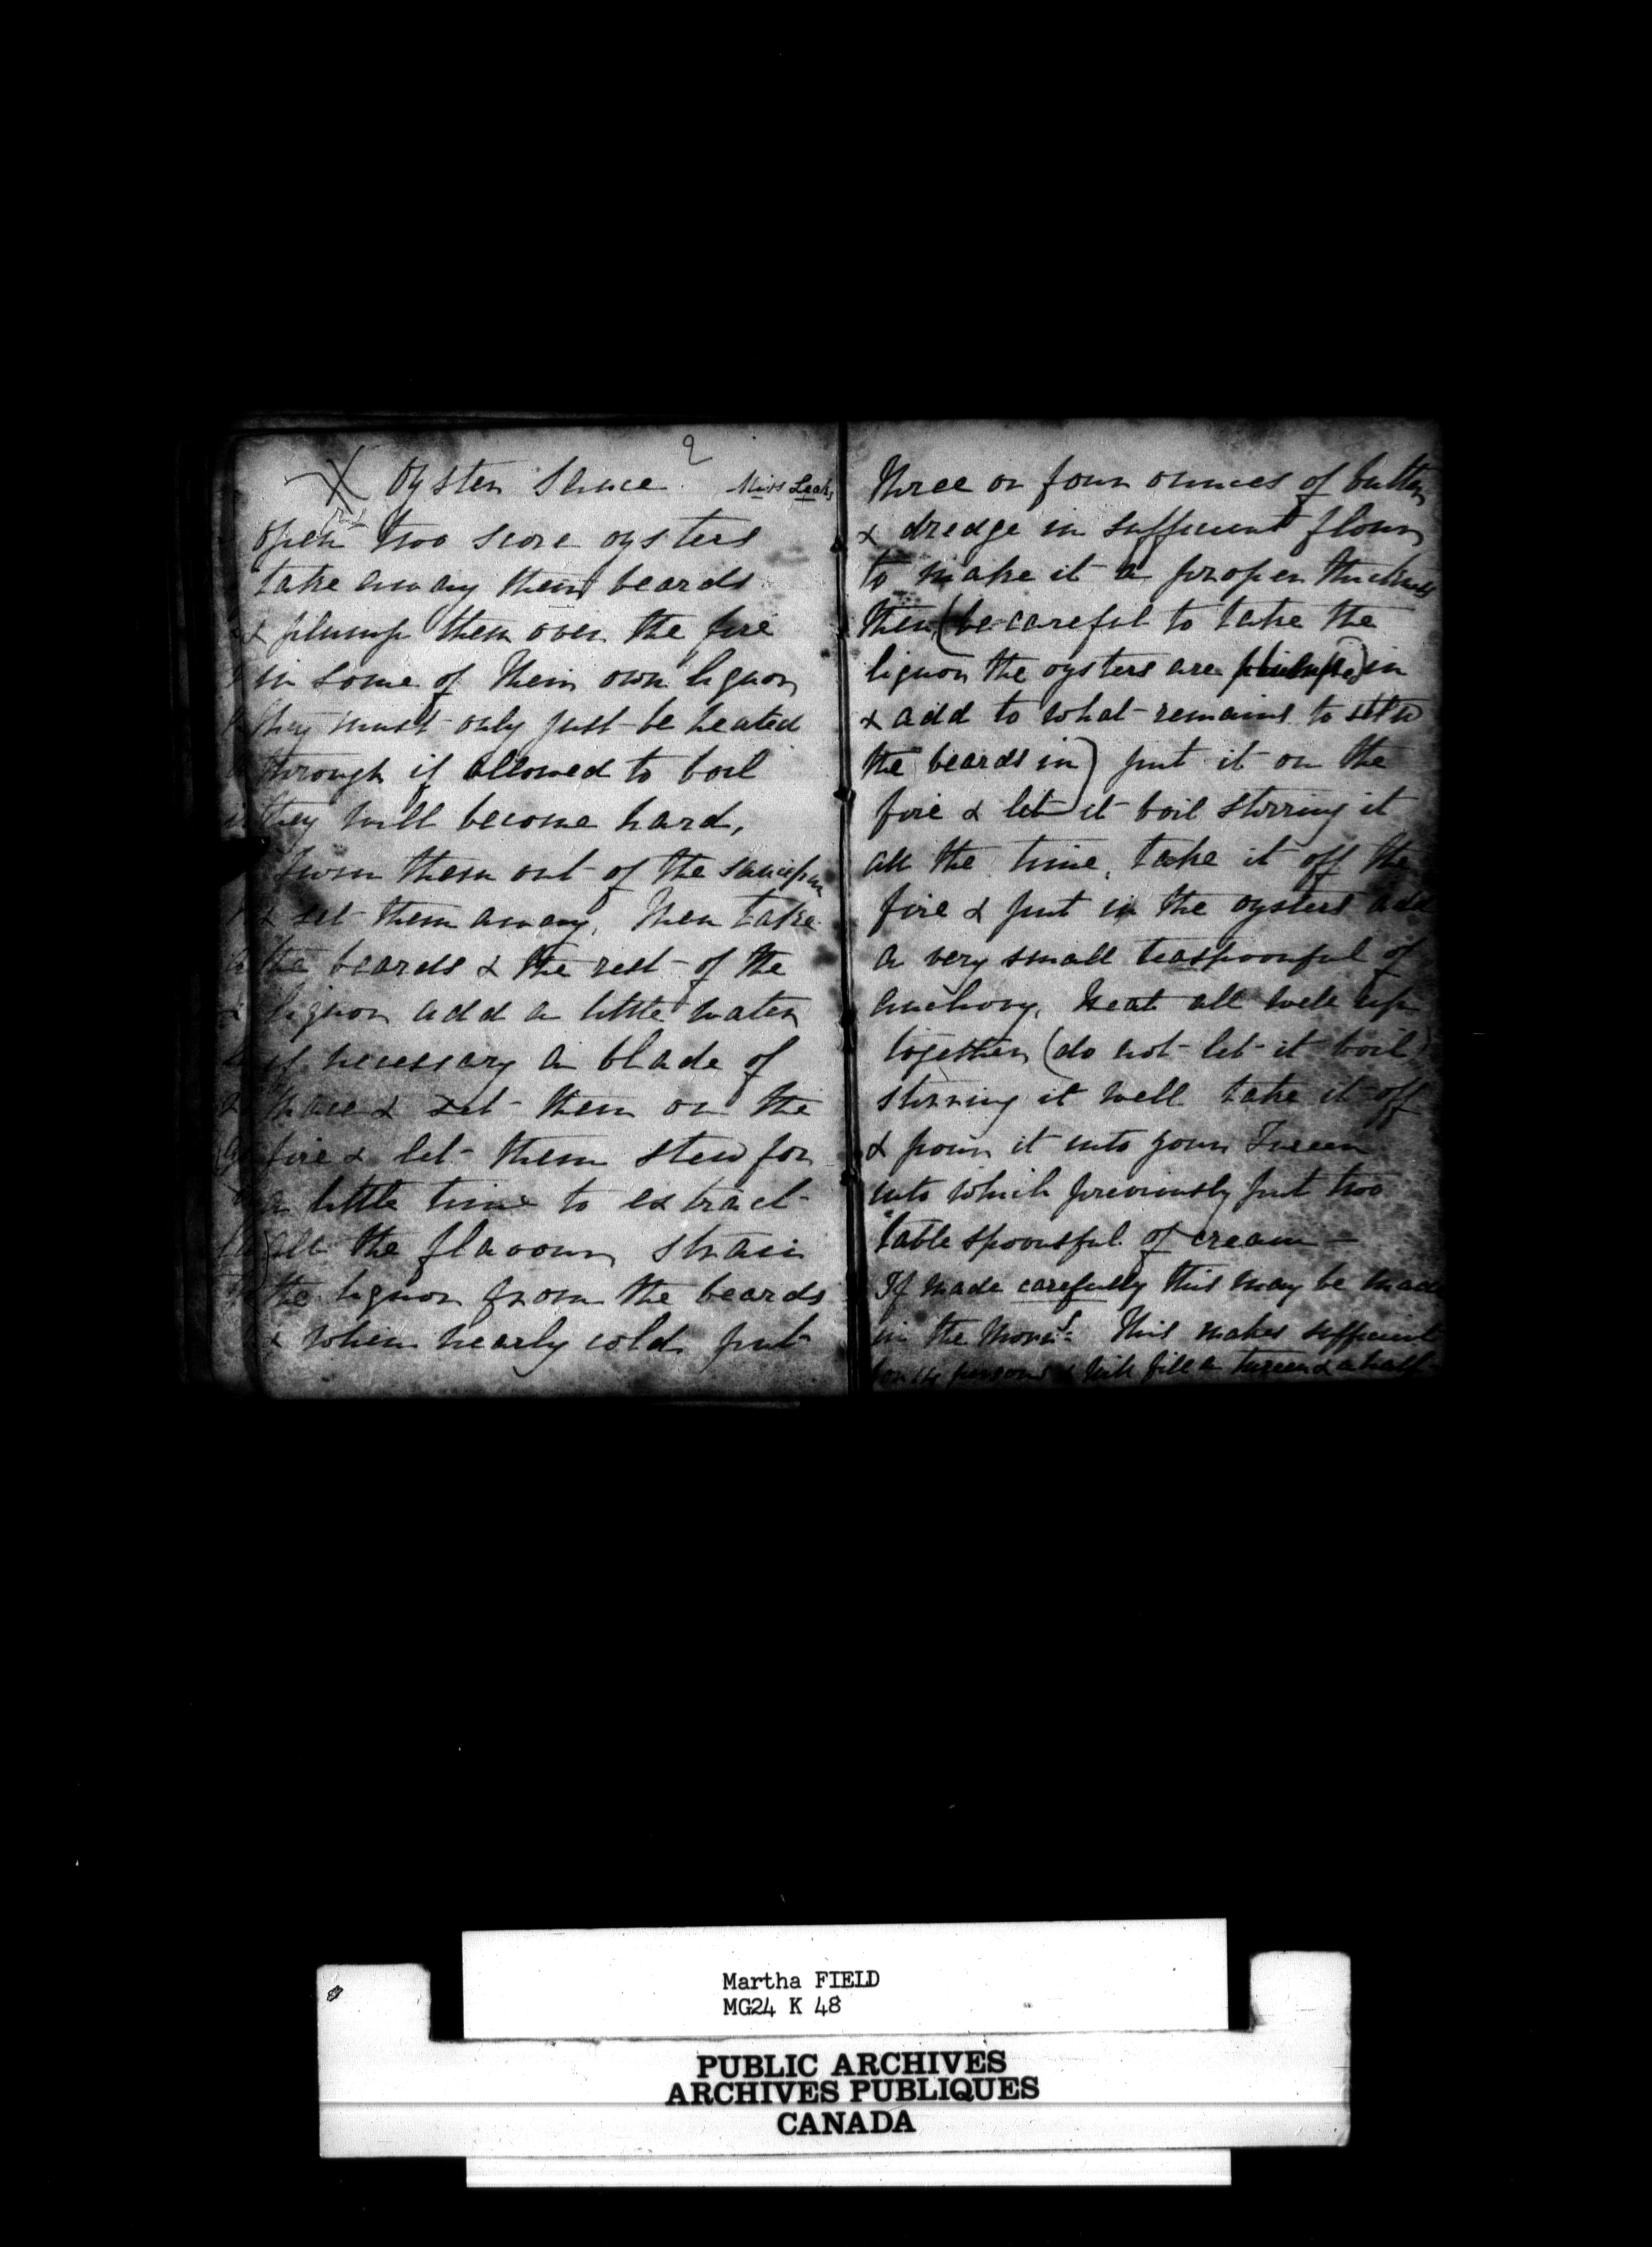 2
X Oyster Sauce. Miss
Open two score oysters
take away their beards
& plump them over the fire
in some of their own liquor
they must only just be heated
through if allowed to boil
they will become hard,
turn them out of the saucepan
& set them away, then take
the beards & the rest of the
liquor add a little water
if necessary a blade of
mace & set them on the
fire & let them stew for
a little time to extract
all the flavour strain
the liquor from the beards
& when nearly cold put
three or four ounces of butter
& dredge in sufficient flour
to make it a proper thickness
then (be careful to take the
liquor the oysters are plumped in
& add to what remains to stew
the beards in) put it on the
fire & let it boil stirring it
all the time, take it off the
fire & put in the oysters add
a very small teaspoonful of
anchovy, heat all well up
together (do not let it boil)
stirring it well take it off
& pour it into your Tureen
into which previously put two
table spoonsful of cream —
If made carefully this may be made
in the morng. This makes sufficient
for persons & will fill a tureen & a half
Martha FIELD
MG24 K 48
PUBLIC ARCHIVES
ARCHIVES PUBLIQUES
CANADA